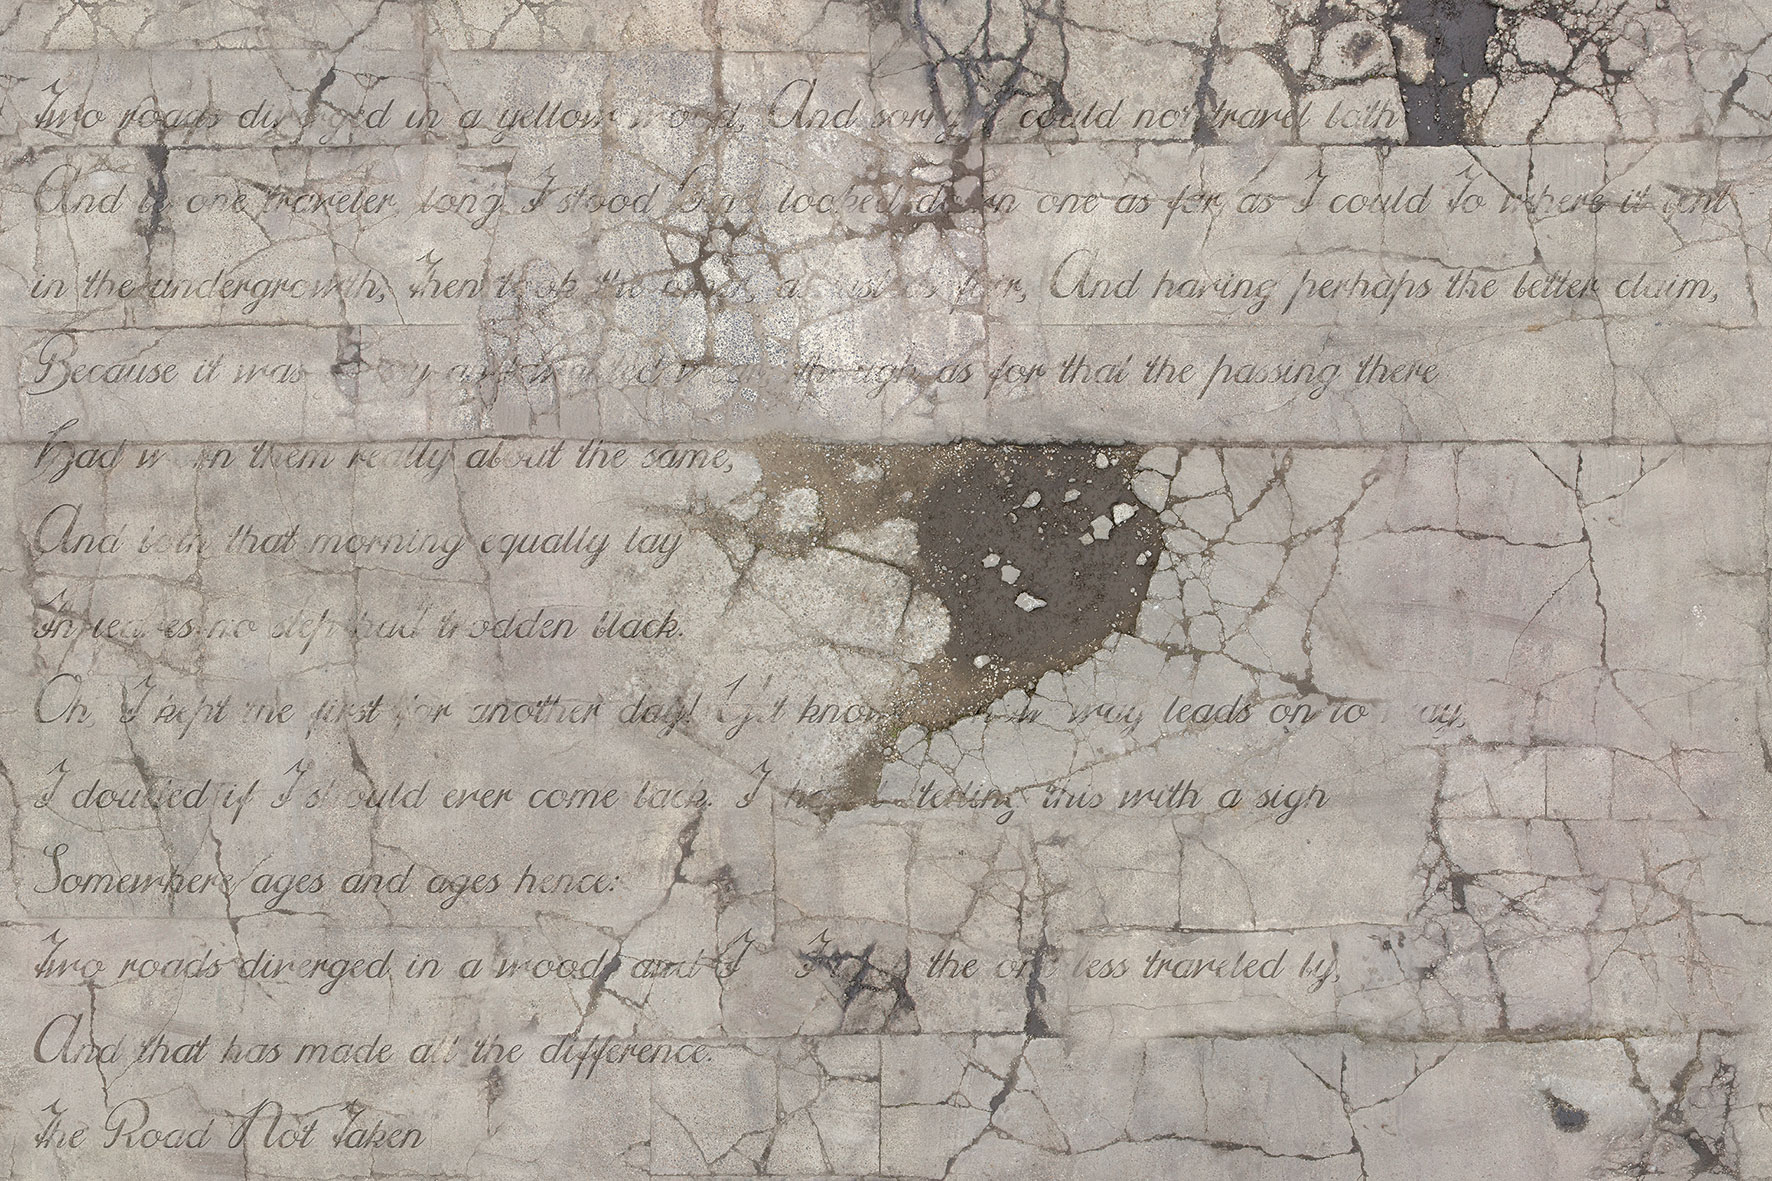 Two roads diverged in a yellow wood, And sorry I could not travel both
And be one traveler, long I stood And looked down one as far as I could To where it bent
in the undergrowth; Then took the other, as just as fair, And having perhaps the better claim,
Because it was and wanted wear though as for that the passing there
Had worn them really about the same,
And both that morning equally lay
In leaves no step had trodden black.
Oh, I kept the first for another day! Yet how way leads on to way,
I doubted if I should ever come back. I telling this with a sigh
Somewhere ages and ages hence:
Two roads diverged in a wood, and I I took the one less traveled by,
And that has made all the difference.
The Road Not Taken